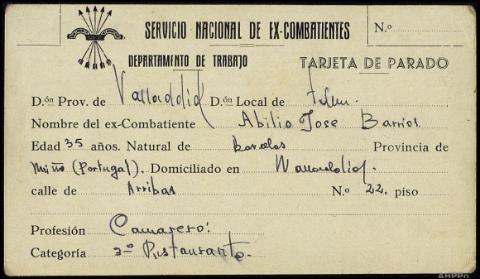 SERVICIO NACIONAL DE EX-COMBATIENTES
N.º
DEPARTAMENTO DE TRABAJO
TARJETA DE PARADO
D.ón Prov. de Valladolid D.ón Local de
Nombre del ex-Combatiente Abilio Jose Barrios
Edad 35 años. Natural de Barcelos Provincia de
Miño (Portugal). Domiciliado en Valladolid
calle de Arribas N.º 22. piso
Profesión Camarero:
Categoría Restaurante.
AHPPo